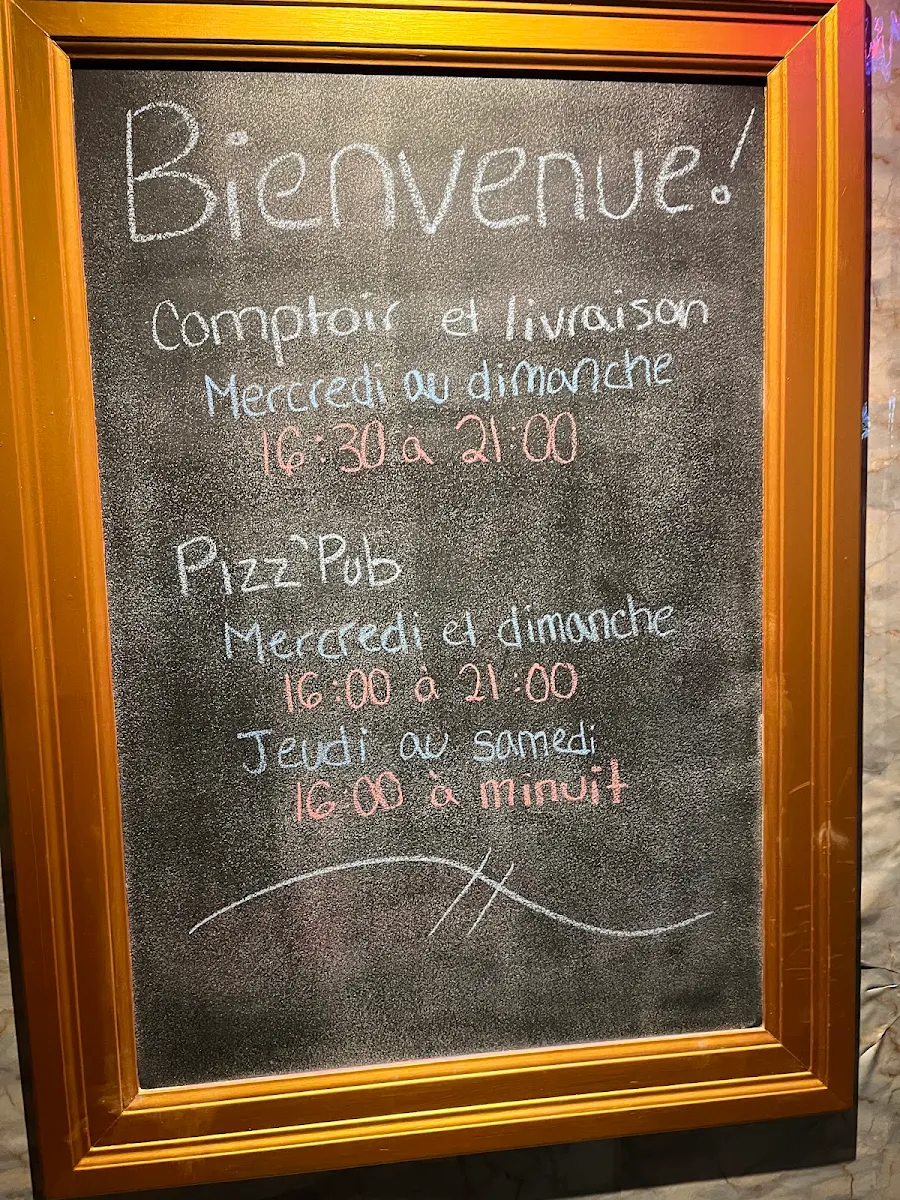 Bienvenue!
Comptoir et livraison
Mercredi au dimanche
16:30 à 21:00
Pizz'Pub
Mercredi et dimanche
16:00 à 21:00
Jeudi au samedi
16:00 à minuit